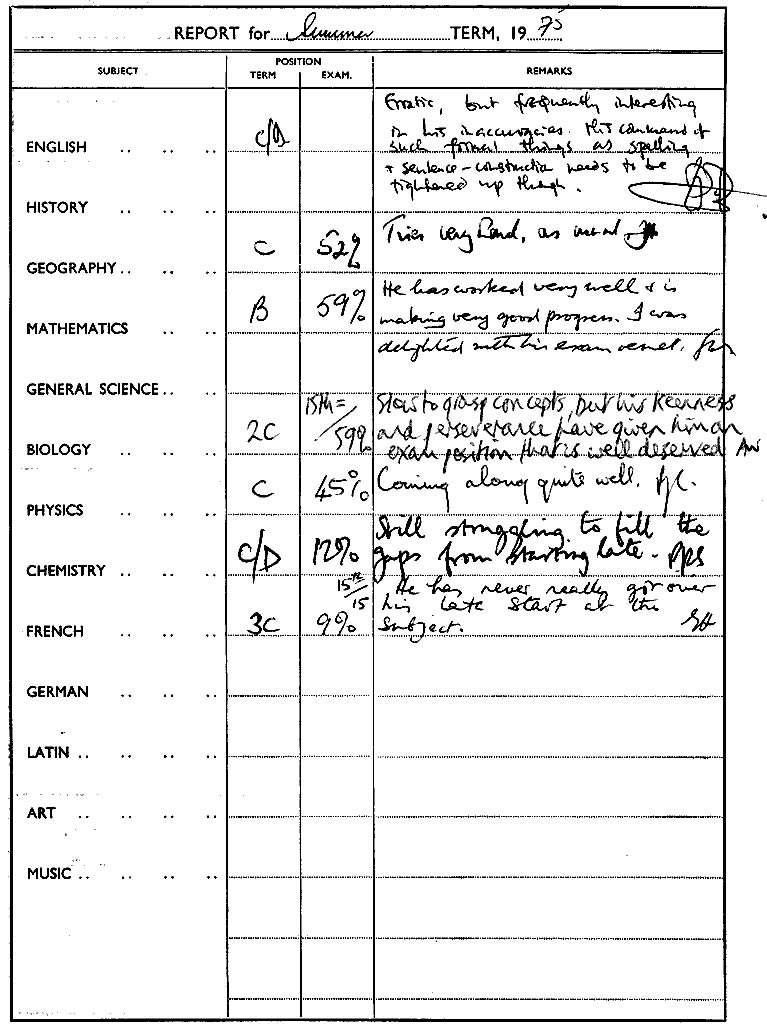 REPORT for Summer TERM, 19 75
SUBJECT POSITION REMARKS
TERM EXAM.
Erratic, but frequently interesting
in his inaccuracies. His command of
such formal things as spelling
+ sentence-construction needs to be
tightened up though.
ENGLISH .. .. .. C/D
HISTORY .. .. ..
Tries very hard, as usual.
GEOGRAPHY .. .. .. C 52%
He has worked very well & is
making very good progress. I was
delighted with his exam result.
MATHEMATICS .. .. B 59%
GENERAL SCIENCE .. ..
Slow to grasp concepts, but his keenness
and perseverance have given him an
exam position that is well deserved
BIOLOGY .. .. .. 2C 15th= / 59%
Coming along quite well.
PHYSICS .. .. .. C 45%
Still struggling to fill the
gaps from starting late. PPS
CHEMISTRY .. .. .. C/D 12%
He has never really got over
his late start at the
subject.
FRENCH .. .. .. 3C 15th/15 9%
GERMAN .. .. ..
LATIN .. .. .. ..
ART .. .. .. ..
MUSIC .. .. .. ..